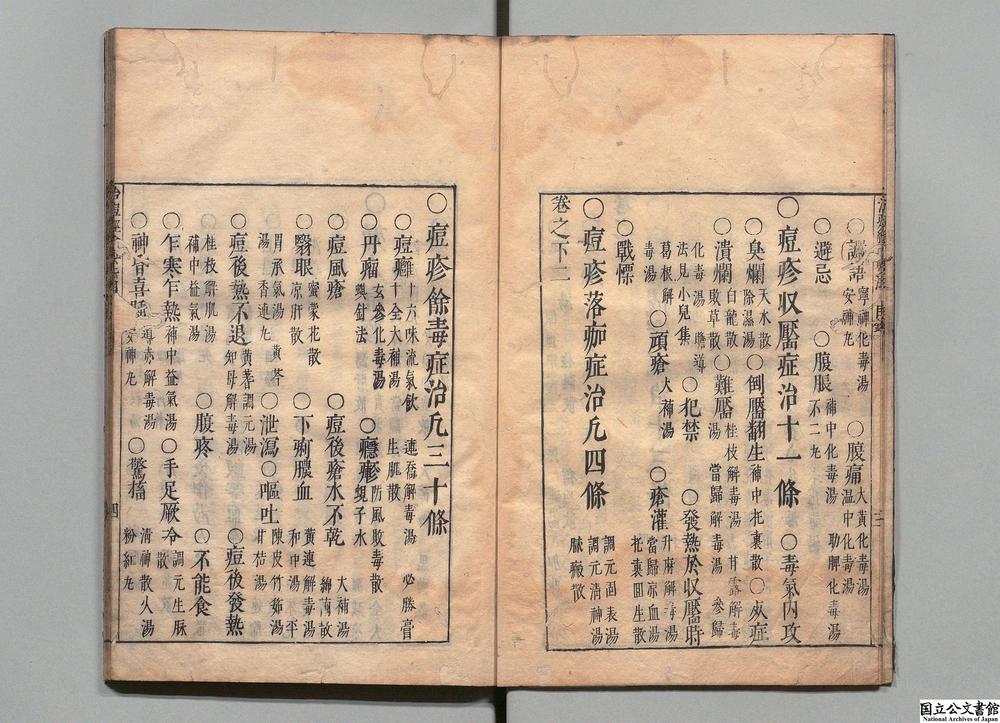 ○譫語 寧神化毒湯 安神丸 ○腹痛 大黃化毒湯 溫中化毒湯
○避忌 ○腹脹 補中化毒湯 不二丸 助脾化毒湯
○痘疹収靨症治十一條 ○毒氣內攻
○臭爛 天水散 除濕湯 ○倒靨翻生 神中托裏散 ○灰症
○潰爛 白龍散 敗草散 ○難靨 桂枝解毒湯 當歸解毒湯 甘露解毒 參歸
化毒湯 法見小兒集 膽導 ○犯禁 ○發熱於収靨時
葛根解毒湯 ○頑瘡 大補湯 ○瘡灌 升麻解毒湯 當歸凉血湯 托裏回生散
○戰慄 調元固表湯 調元淸神湯
○痘疹落痂症治凡四條
卷之下二
○痘疹餘毒症治凡三十條
○痘癰 十六味流氣飮 十全大補湯 連喬解毒湯 生肌散 必勝膏
○丹瘤 玄參化毒湯 與針法 ○癮疹 防風敗毒散 蜆子水
○痘風瘡 ○痘後瘡水不乾 大補湯 綿蠒散
○翳眼 蜜蒙花散 凉肝散 ○下痢膿血 黃連解毒湯 和中湯
胃承氣湯 黃芩湯 香連丸 ○泄瀉 ○嘔吐 陳皮竹茹湯 甘桔湯
○痘後熱不退 黃蓍調元湯 知母解毒湯 ○痘後發熱
桂枝解肌湯 補中益氣湯 ○腹疼 ○不能食
○乍寒乍熱 神中益氣湯 ○手足厥冷 調元生脉散
○神昏喜睡 導赤解毒湯 安神丸 ○驚搐 淸神散火湯 粉紅丸
四
国立公文書館
National Archives of Japan